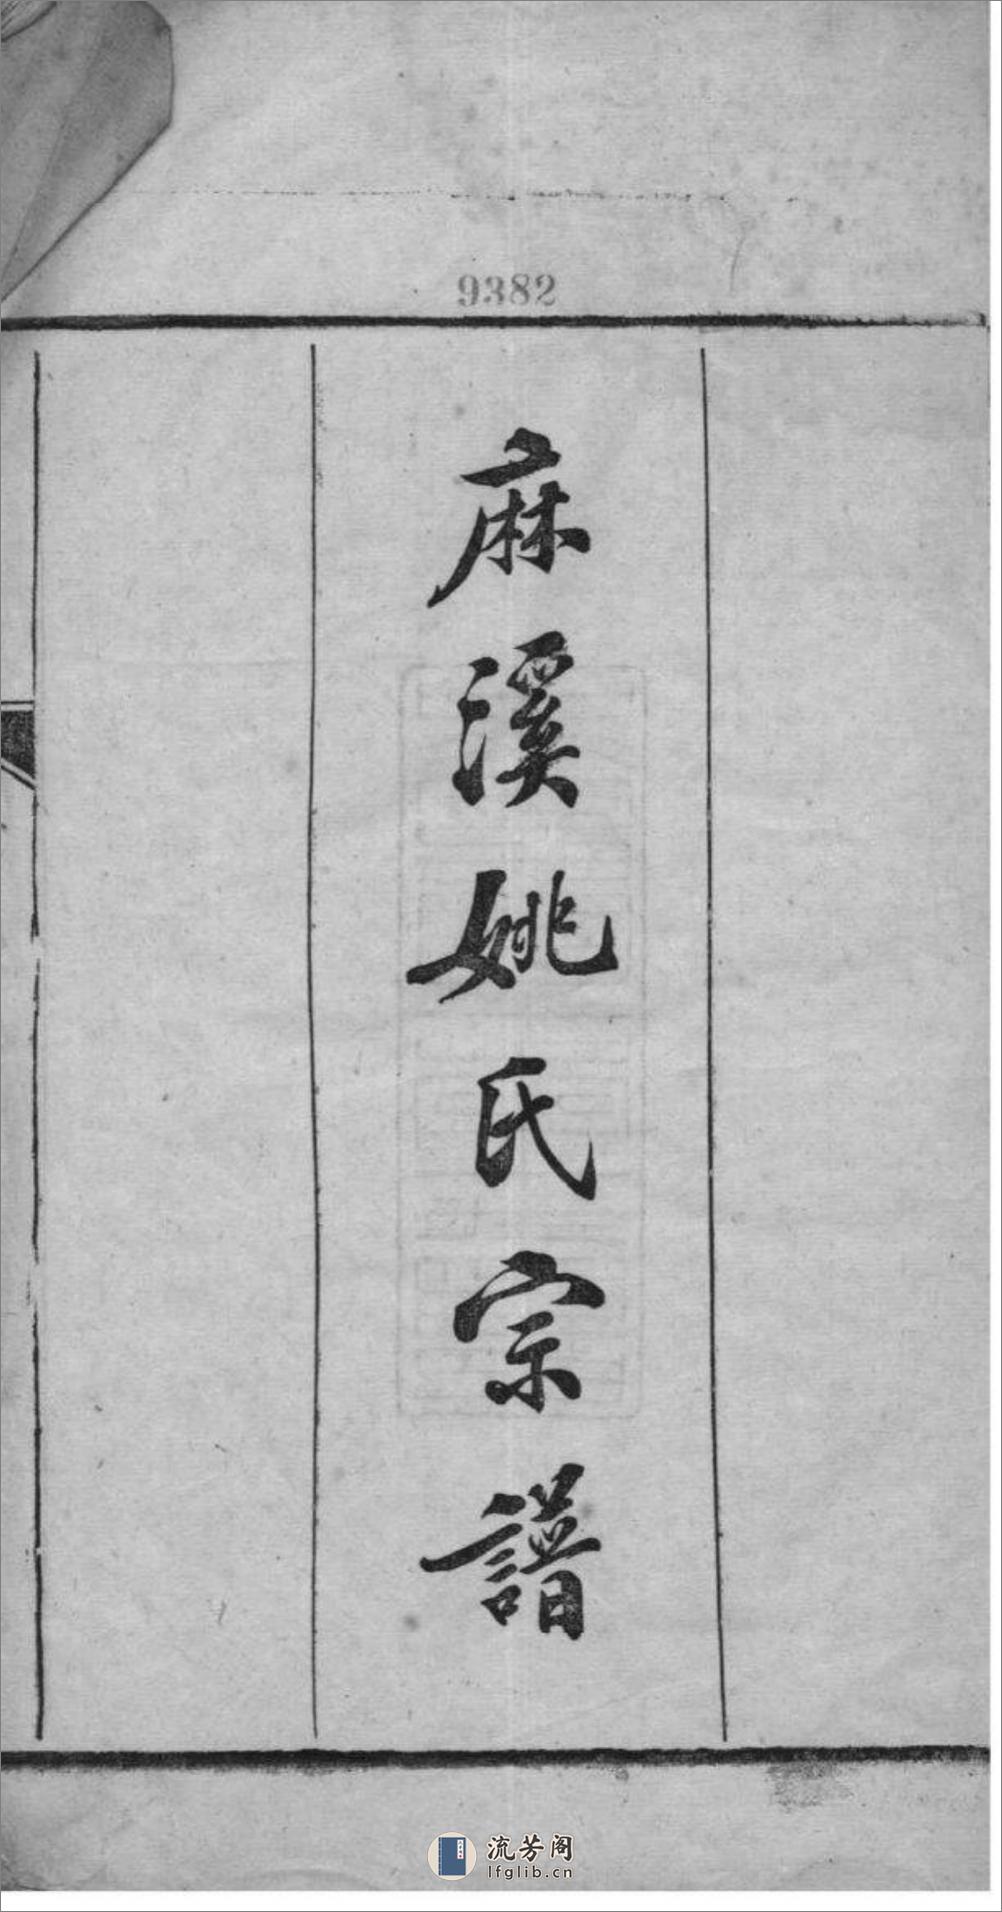 9382
麻溪姚氏宗譜
流芳阁
lfglib.cn